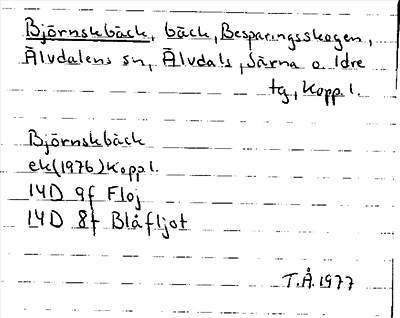 Björnskbäck, bäck, Besparingsskogen,
Älvdalens sn, Älvdals, Särna o. Idre
tg, Kopp l.
Björnskbäck
ek (1976) Kopp l.
14D 9f Floj
14D 8f Blåfljot
T.Å. 1977